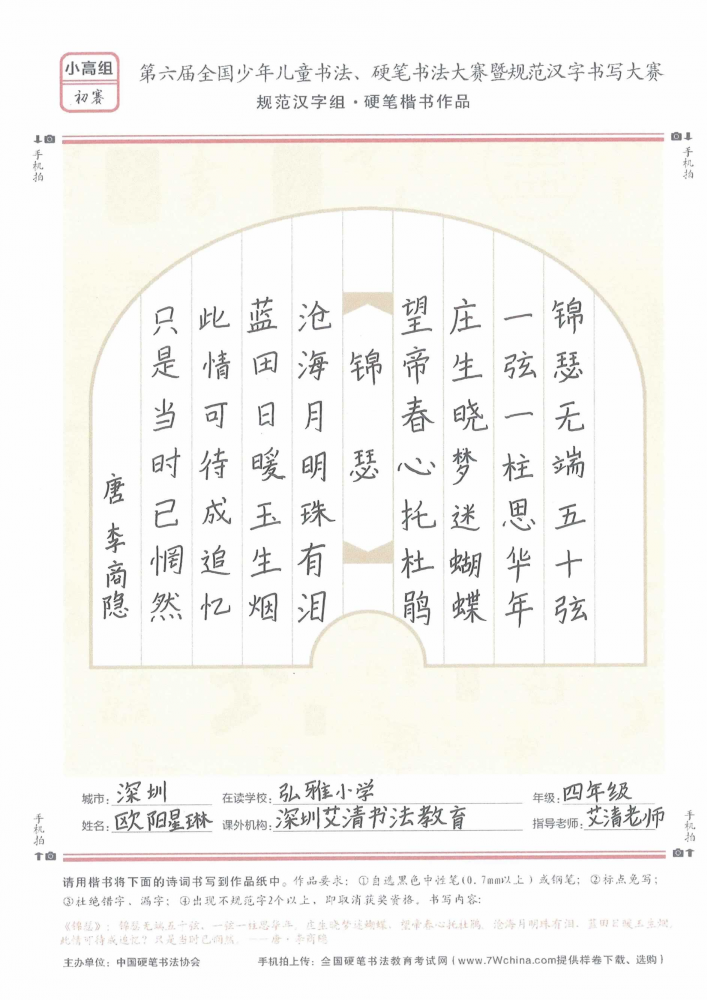 小高组
初赛
第六届全国少年儿童书法、硬笔书法大赛暨规范汉字书写大赛
规范汉字组·硬笔楷书作品
手机拍
手机拍
锦瑟无端五十弦
一弦一柱思华年
庄生晓梦迷蝴蝶
望帝春心托杜鹃
锦瑟
沧海月明珠有泪
蓝田日暖玉生烟
此情可待成追忆
只是当时已惘然
唐 李商隐
城市：深圳 在读学校：弘雅小学 年级：四年级
姓名：欧阳星琳 课外机构：深圳艾清书法教育 指导老师：艾清老师
手机拍
手机拍
请用楷书将下面的诗词书写到作品纸中。作品要求：①自选黑色中性笔(0.7mm以上)或钢笔；②标点免写；
③杜绝错字、漏字；④出现不规范字2个以上，即取消获奖资格。书写内容：
《锦瑟》：锦瑟无端五十弦，一弦一柱思华年。庄生晓梦迷蝴蝶，望帝春心托杜鹃。沧海月明珠有泪，蓝田日暖玉生烟。
此情可待成追忆？只是当时已惘然。——唐·李商隐
主办单位：中国硬笔书法协会 手机拍上传：全国硬笔书法教育考试网(www.7Wchina.com提供样卷下载、选购)